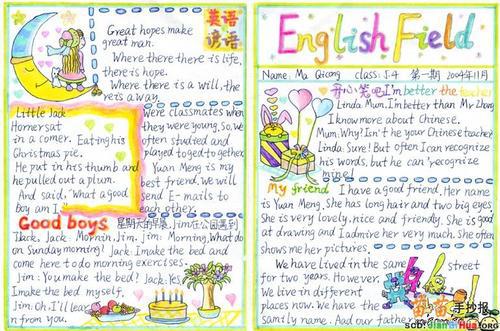 英语
谚语
Great hopes make
great man.
Where there there is life,
there is hope.
Where there is a will, the
re is a way.
Little Jack
Horner sat
in a corner. Eating his
Christmas pie.
He put in his thumb and
he pulled out a plum.
And said, "What a good
boy am I.
Were classmates when
they were young, so we
often studied and
played to ged to gether
Yuan Meng is my
best friend, we will
send E-mails to
each other.
Good boys
Jim:
Jack: Mornin, Jim. Jim: Morning, What do
on Sunday morning? Jack: I make the bed and
come here to do morning exercises.
Jim: You make the bed? Jack: Yes,
I make the bed myself,
Jim: Oh, I'll lear
n from you.
English Field
Name: Ma Qicong class: 5.4 第一期 2004年11月
开心一笑吧 I'm better the teacher
Linda: Mum. I'm better than Mr Zhang
I know more about Chinese.
Mum: Why! Isn't he your Chinese teacher
Linda: Sure! But often I can recognize
his words, but he can't recognize
mine!
My friend
I have a good friend. Her name
is Yuan Meng, She has long hair and two big eyes
She is very lovely, nice and friendly. She is good
at drawing and I admire her very much. She often
shows me her pictures.
We have lived in the same street
for two years. However,
We live in different
places now. We have the
samily name. And our father
手抄报